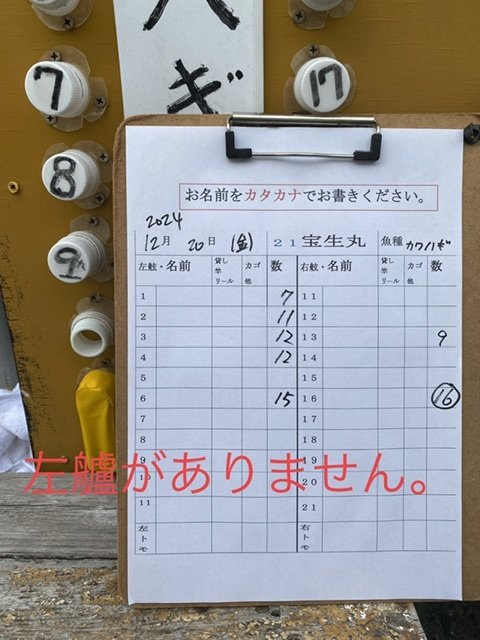 ハギ
7
17
8
9
お名前をカタカナでお書きください。
2024
12月 20日 (金) 21宝生丸 魚種 カワハギ
左舷・名前 貸し竿リール カゴ他 数 右舷・名前 貸し竿リール カゴ他 数
1 7 11
2 11 12
3 12 13 9
4 12 14
5 15
6 15 16 16
7 17
8 18
9 19
左艫がありません。
10 20
11 21
左トモ 右トモ